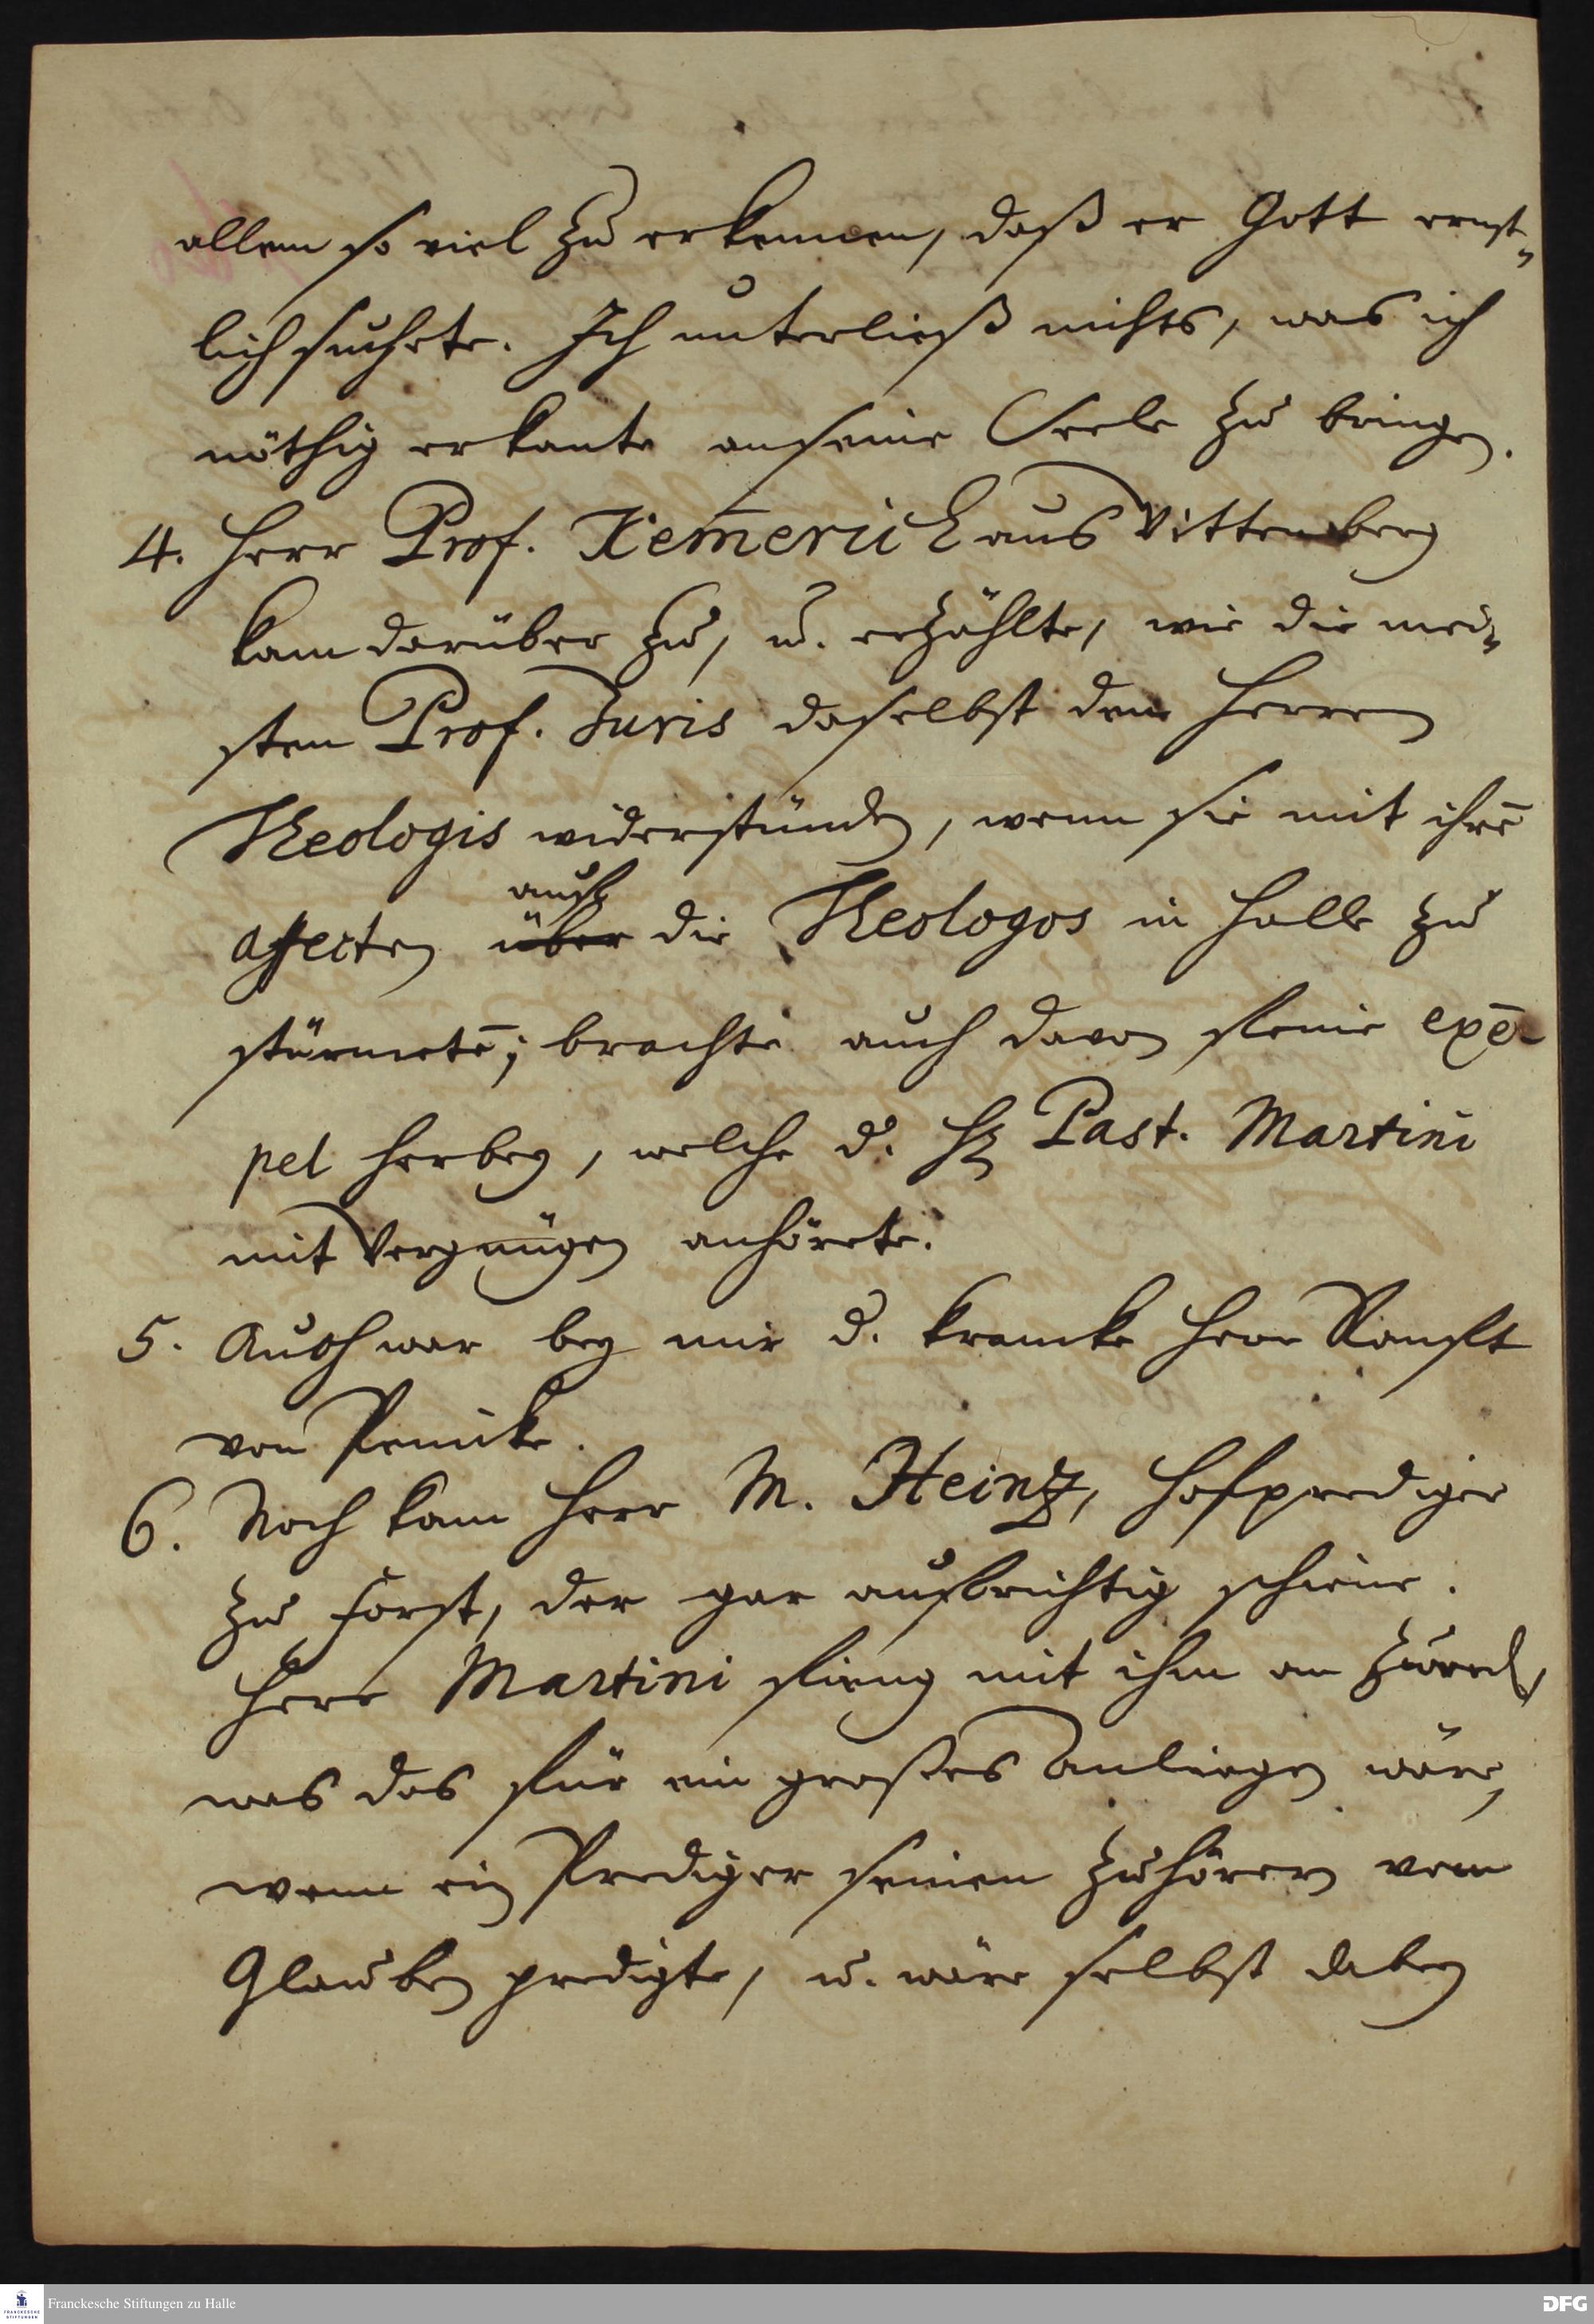 allem so viel zu erkennen, daß er Gott ernst-
lich suchete. Ich unterließ nichts, was ich
nöthig erkante an seine Seele zu bringen.
4. Herr Prof. Kem̄erich aus Wittenberg
kam darüber zu, u. erzählte, wie die mei-
sten Prof. Juris daselbst denen Herren
Theologis widerstünden, wenn sie mit ihrē
auf
affecten über die Theologos in Halle zu
stürmetē; brachte auch davon feine exē-
pel herbey, welche d. H. Past. Martini
mit Vergnügen anhörete.
5. Auch war bey mir d. krancke Herr Ranfft
von Penick.
6. Noch kam Herr M. Heintz, Hofprediger
zu Forst, der gar aufrichtig schiene.
Herr Martini fieng mit ihm an zu red.,
was das für ein großes Anliegen wäre,
wenn ein Prediger seinen Zuhörern vom
Glauben predigte, u. wäre selbst dabey
Franckesche Stiftungen zu Halle
DFG